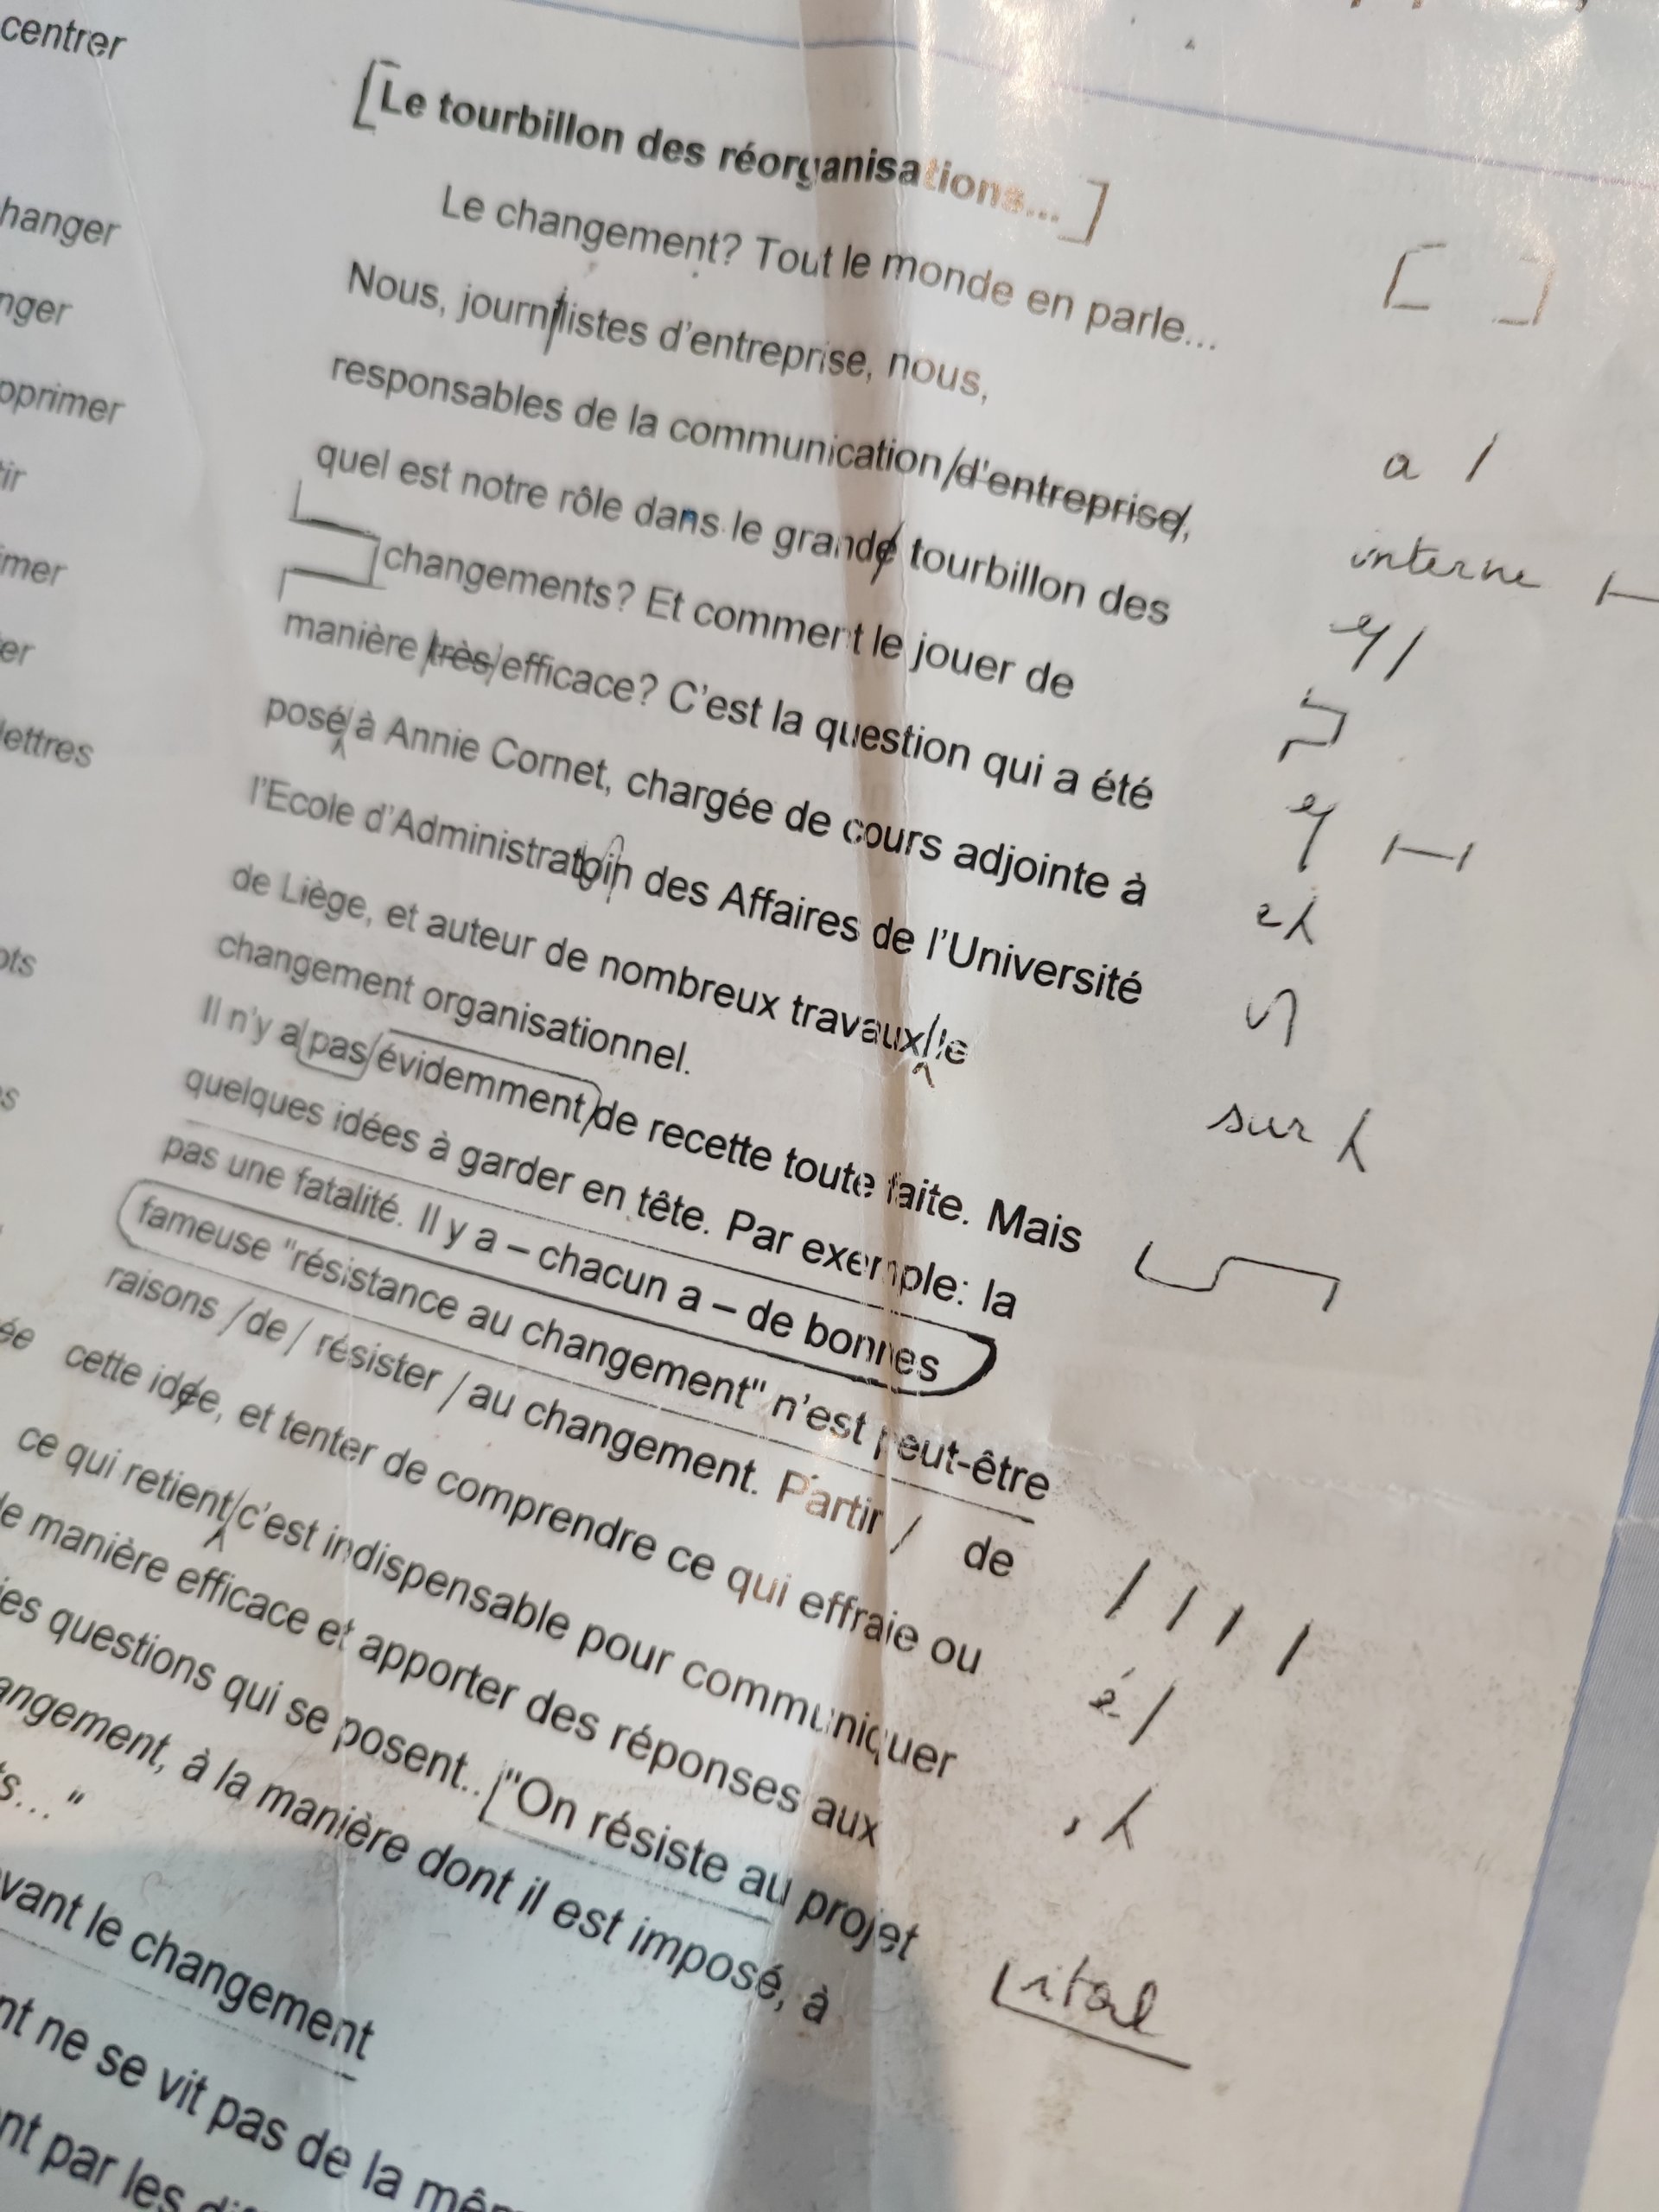 centrer
[Le tourbillon des réorganisations...]
Le changement? Tout le monde en parle...
[ ]
hanger
Nous, journlistes d'entreprise, nous,
a /
nger
responsables de la communication/d'entreprise/,
interne
pprimer
quel est notre rôle dans le grande tourbillon des
tir
changements? Et comment le jouer de
imer
manière /très/efficace? C'est la question qui a été
er
posé/à Annie Cornet, chargée de cours adjointe à
e
lettres
l'Ecole d'Administratoin des Affaires de l'Université
de Liège, et auteur de nombreux travaux/le
sur
ots
changement organisationnel.
Il n'y a/pas/évidemment/de recette toute faite. Mais
quelques idées à garder en tête. Par exemple: la
pas une fatalité. Il y a – chacun a – de bonnes
fameuse "résistance au changement" n'est peut-être
raisons /de/ résister /au changement. Partir / de
/ / / /
ée
cette idée, et tenter de comprendre ce qui effraie ou
é /
ce qui retient/c'est indispensable pour communiquer
,
de manière efficace et apporter des réponses aux
es questions qui se posent...["On résiste au projet
ital
angement, à la manière dont il est imposé, à
ts..."
vant le changement
nt ne se vit pas de la mêm
nt par les di